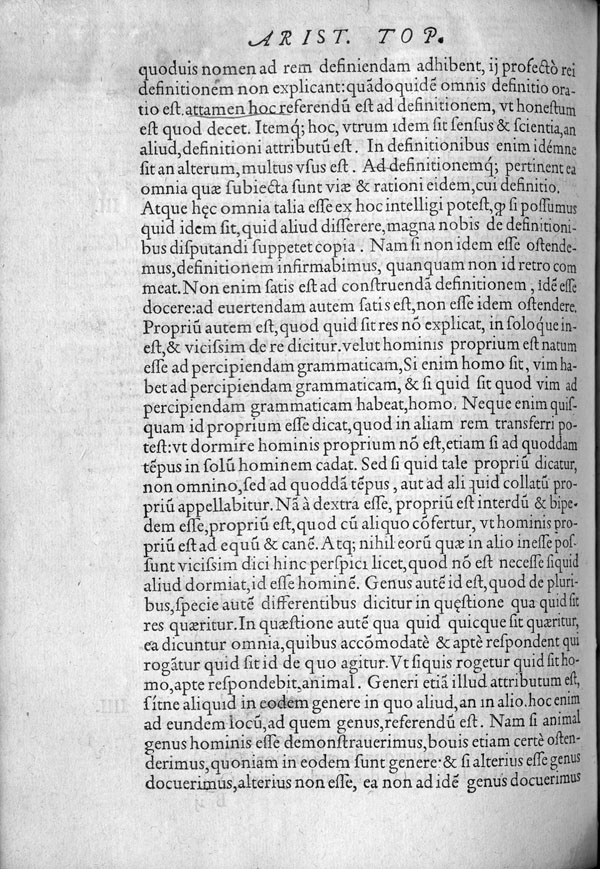 ARIST. TOP.
quoduis nomen ad rem definiendam adhibent, ij profectò rei
definitionem non explicant: quãdoquidẽ omnis definitio ora-
tio est. attamen hoc referendũ est ad definitionem, vt honestum
est quod decet. Itemq́; hoc, vtrum idem sit sensus & scientia, an
aliud, definitioni attributũ est. In definitionibus enim idémne
sit an alterum, multus vsus est. Ad definitionemq́; pertinent ea
omnia quæ subiecta sunt viæ & rationi eidem, cui definitio.
Atque hęc omnia talia esse ex hoc intelligi potest, ꝙ si possumus
quid idem sit, quid aliud disserere, magna nobis de definitioni-
bus disputandi suppetet copia. Nam si non idem esse ostende-
mus, definitionem infirmabimus, quanquam non id retro com
meat. Non enim satis est ad construendã definitionem, idẽ esse
docere: ad euertendam autem satis est, non esse idem ostendere.
Propriũ autem est, quod quid sit res nõ explicat, in soloque in-
est, & vicissim de re dicitur. velut hominis proprium est natum
esse ad percipiendam grammaticam, Si enim homo sit, vim ha-
bet ad percipiendam grammaticam, & si quid sit quod vim ad
percipiendam grammaticam habeat, homo. Neque enim quis-
quam id proprium esse dicat, quod in aliam rem transferri po-
test: vt dormire hominis proprium nõ est, etiam si ad quoddam
tẽpus in solũ hominem cadat. Sed si quid tale propriũ dicatur,
non omnino, sed ad quoddã tẽpus, aut ad aliquid collatũ pro-
priũ appellabitur. Nã à dextra esse, propriũ est interdũ & bipe-
dem esse, propriũ est, quod cũ aliquo cõfertur, vt hominis pro-
priũ est ad equũ & canẽ. Atq; nihil eorũ quæ in alio inesse pos-
sunt vicissim dici hinc perspici licet, quod nõ est necesse siquid
aliud dormiat, id esse hominẽ. Genus autẽ id est, quod de pluri-
bus, specie autẽ differentibus dicitur in quęstione qua quid sit
res quæritur. In quæstione autẽ qua quid quicque sit quæritur,
ea dicuntur omnia, quibus accõmodatè & aptè respondent qui
rogãtur quid sit id de quo agitur. Vt siquis rogetur quid sit ho-
mo, apte respondebit, animal. Generi etiã illud attributum est,
sítne aliquid in eodem genere in quo aliud, an in alio. hoc enim
ad eundem locũ, ad quem genus, referendũ est. Nam si animal
genus hominis esse demonstrauerimus, bouis etiam certè osten-
derimus, quoniam in eodem sunt genere· & si alterius esse genus
docuerimus, alterius non esse, ea non ad idẽ genus docuerimus